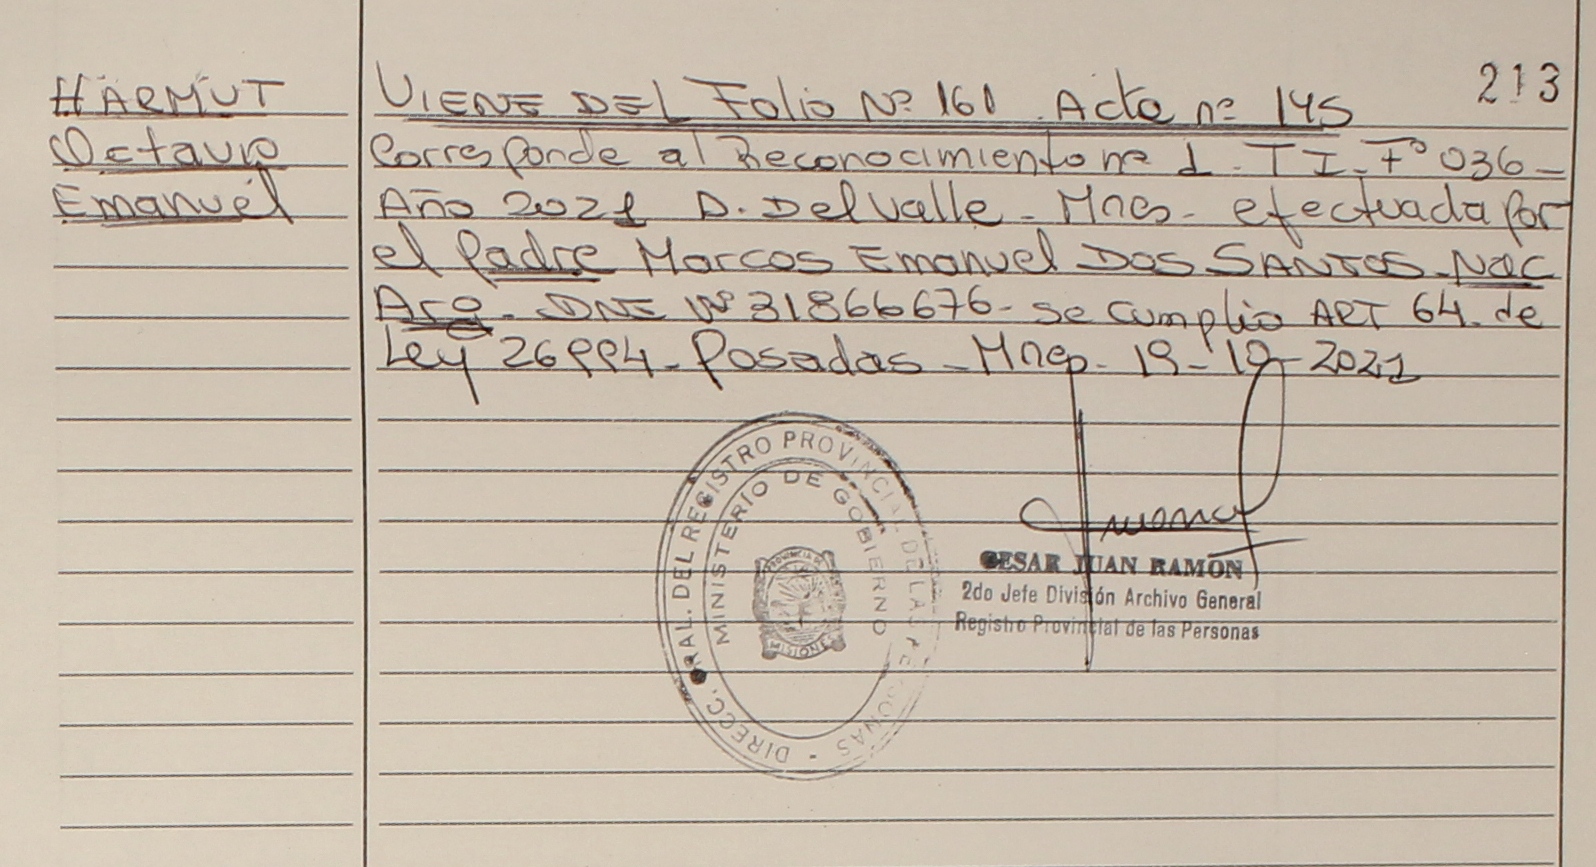 213
HARMUT
Octavio
Emanuel
VIENE DEL Folio Nº 161. Acta nº 145
Corresponde al Reconocimiento nº 1 - T I - Fº 036 -
Año 2021 D. Del Valle - Mnes - efectuada por
el Padre Marcos Emanuel DOS SANTOS - Nac
Arg - DNI Nº 31866676 - se cumplio ART 64 - de
Ley 26994 - Posadas - Mnes - 19-10-2021
DIRECC. GRAL. DEL REGISTRO PROVINCIAL DE LAS PERSONAS -
MINISTERIO DE GOBIERNO
PROVINCIA DE
MISIONES
CESAR JUAN RAMÓN
2do Jefe División Archivo General
Registro Provincial de las Personas